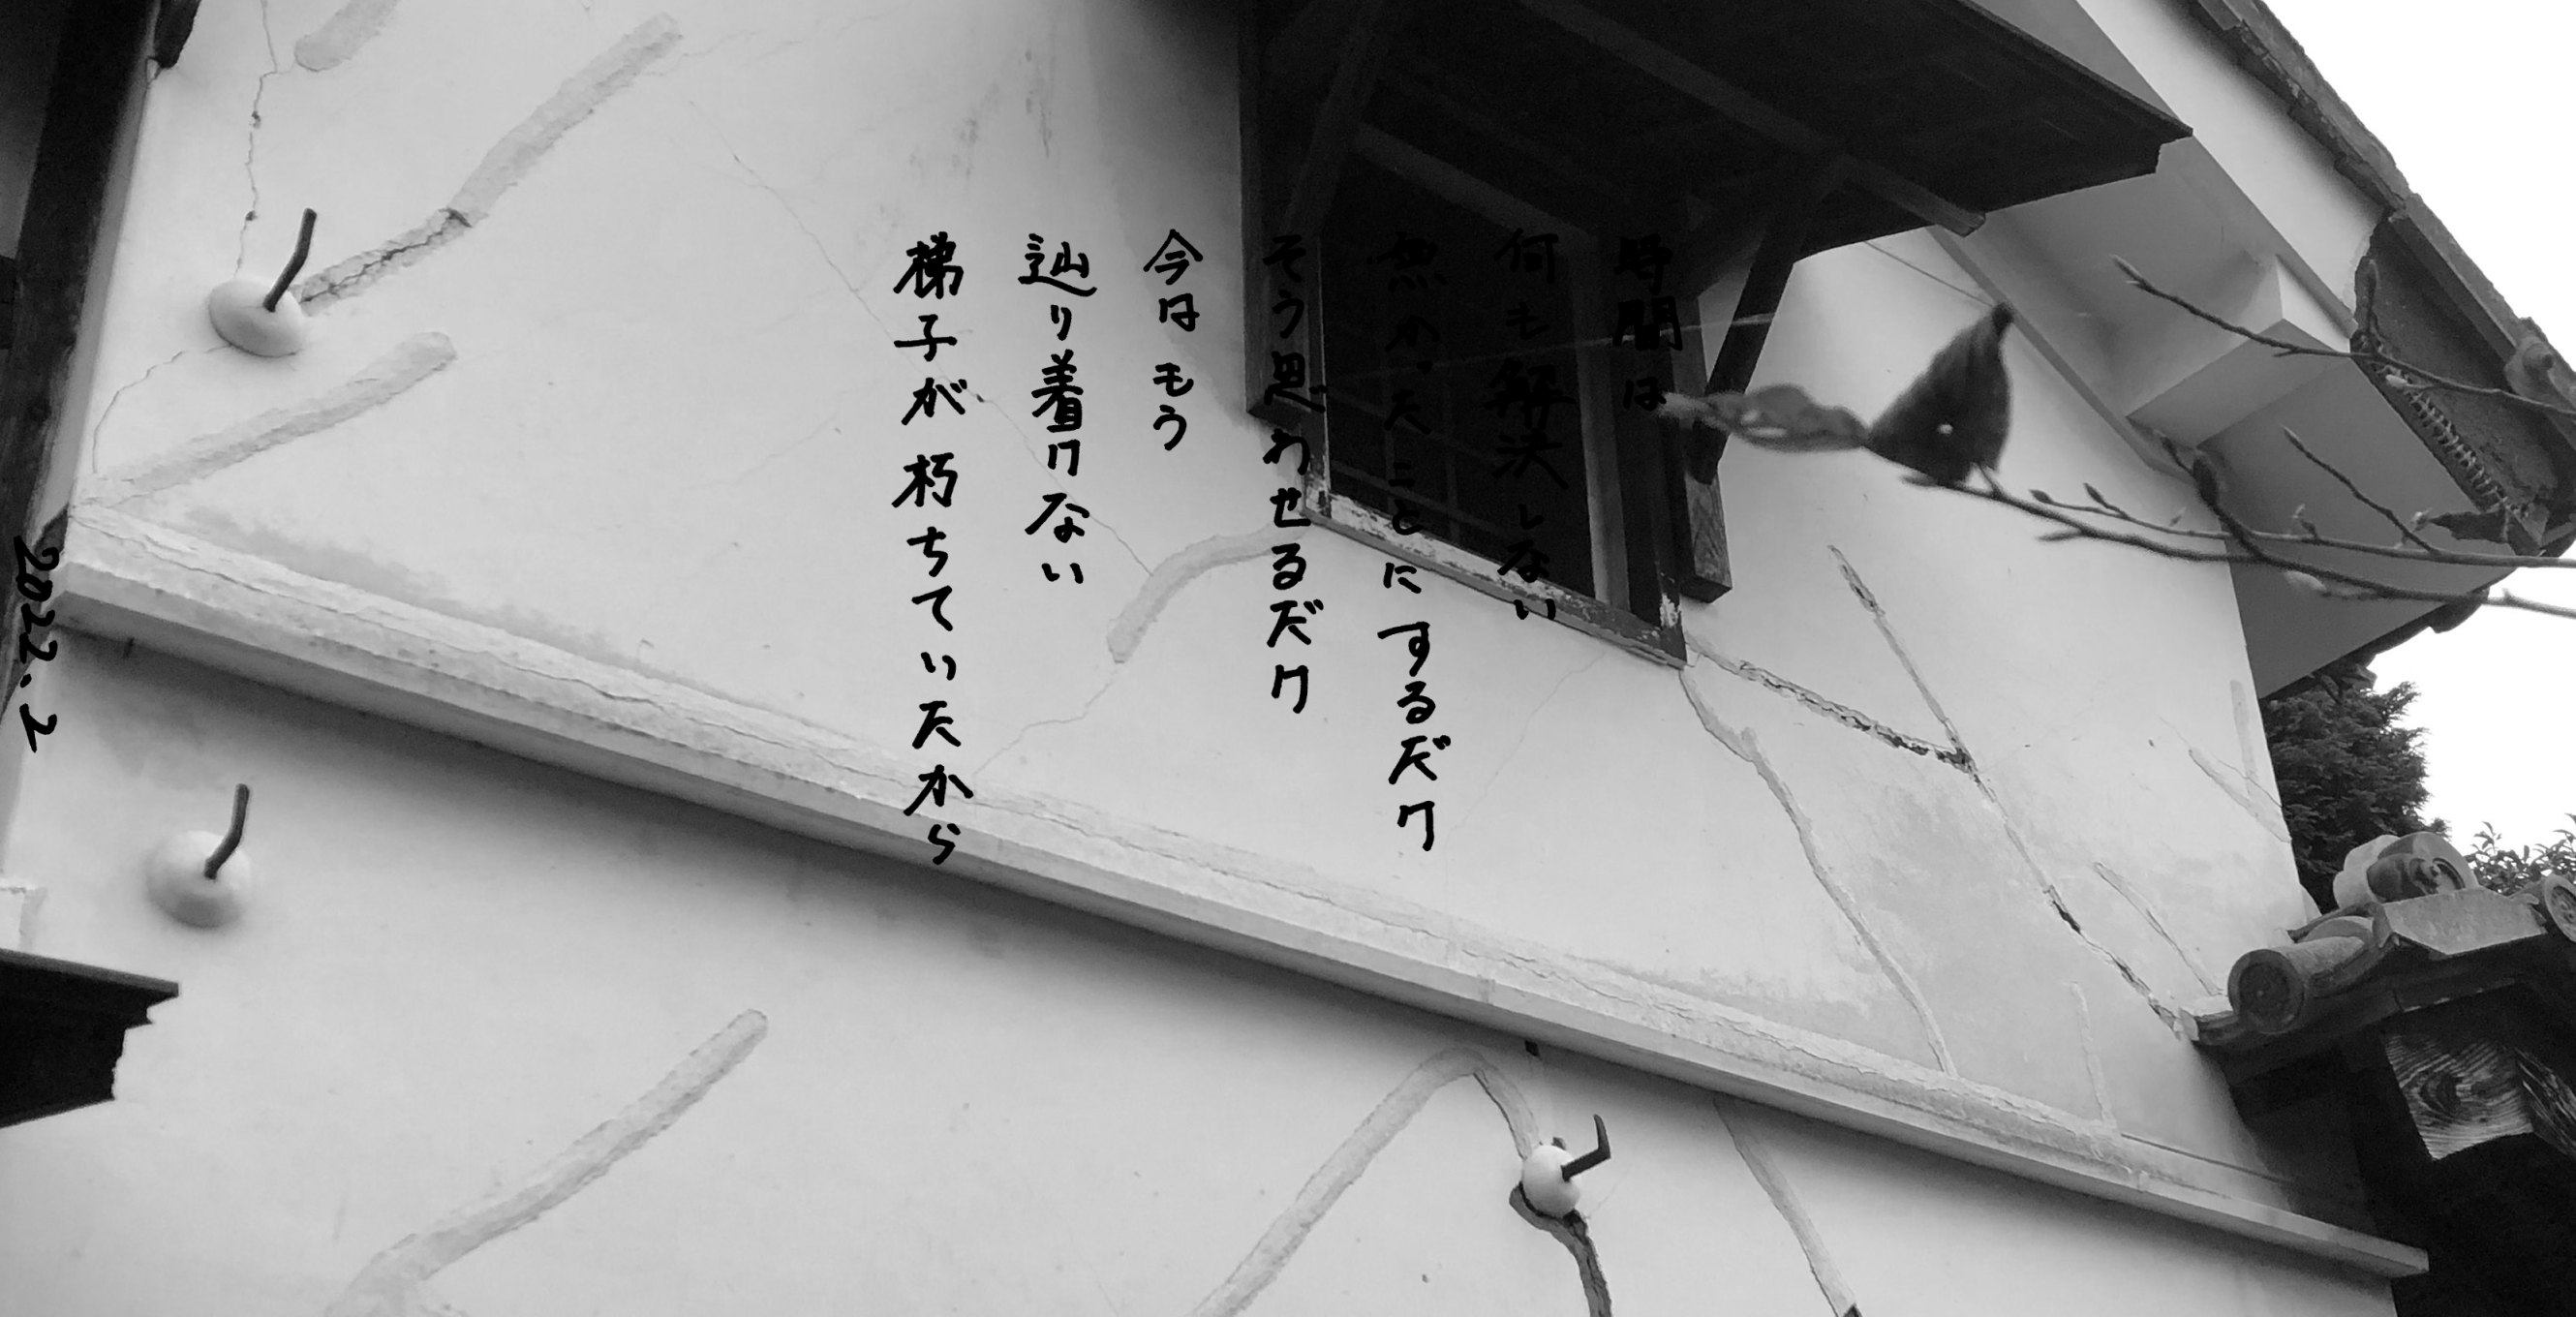 時間は
何も解決しない
無かったことにするだけ
そう思わせるだけ
今はもう
辿り着けない
梯子が朽ちていたから
2022.2